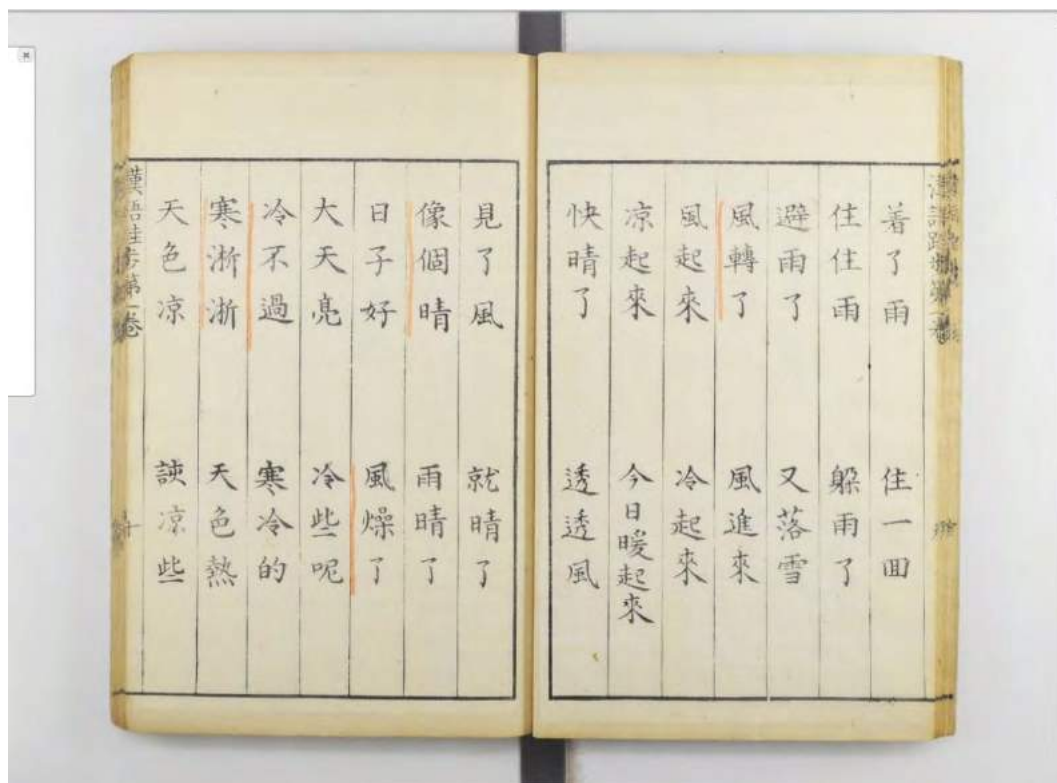 着了雨 住一囬
住住雨 躲雨了
避雨了 又落雪
風轉了 風進來
風起來 冷起來
凉起來 今日暖起來
快晴了 透透風
見了風 就晴了
像個晴 雨晴了
日子好 風燥了
大天亮 冷些呢
冷不過 寒冷的
寒淅淅 天色熱
天色凉 諛凉些
漢語跬步第一卷
十